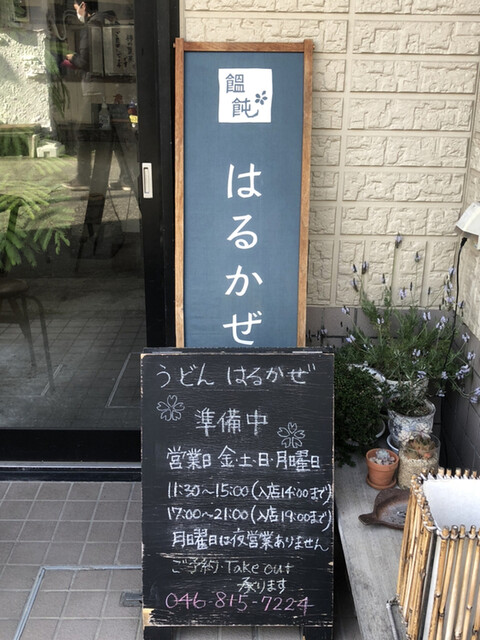 饂飩
はるかぜ
うどん はるかぜ
準備中
営業日 金・土・日・月曜日
11:30〜15:00(入店14:00まで)
17:00〜21:00(入店19:00まで)
月曜日は夜営業ありません
ご予約・Take out
承ります
046-815-7224